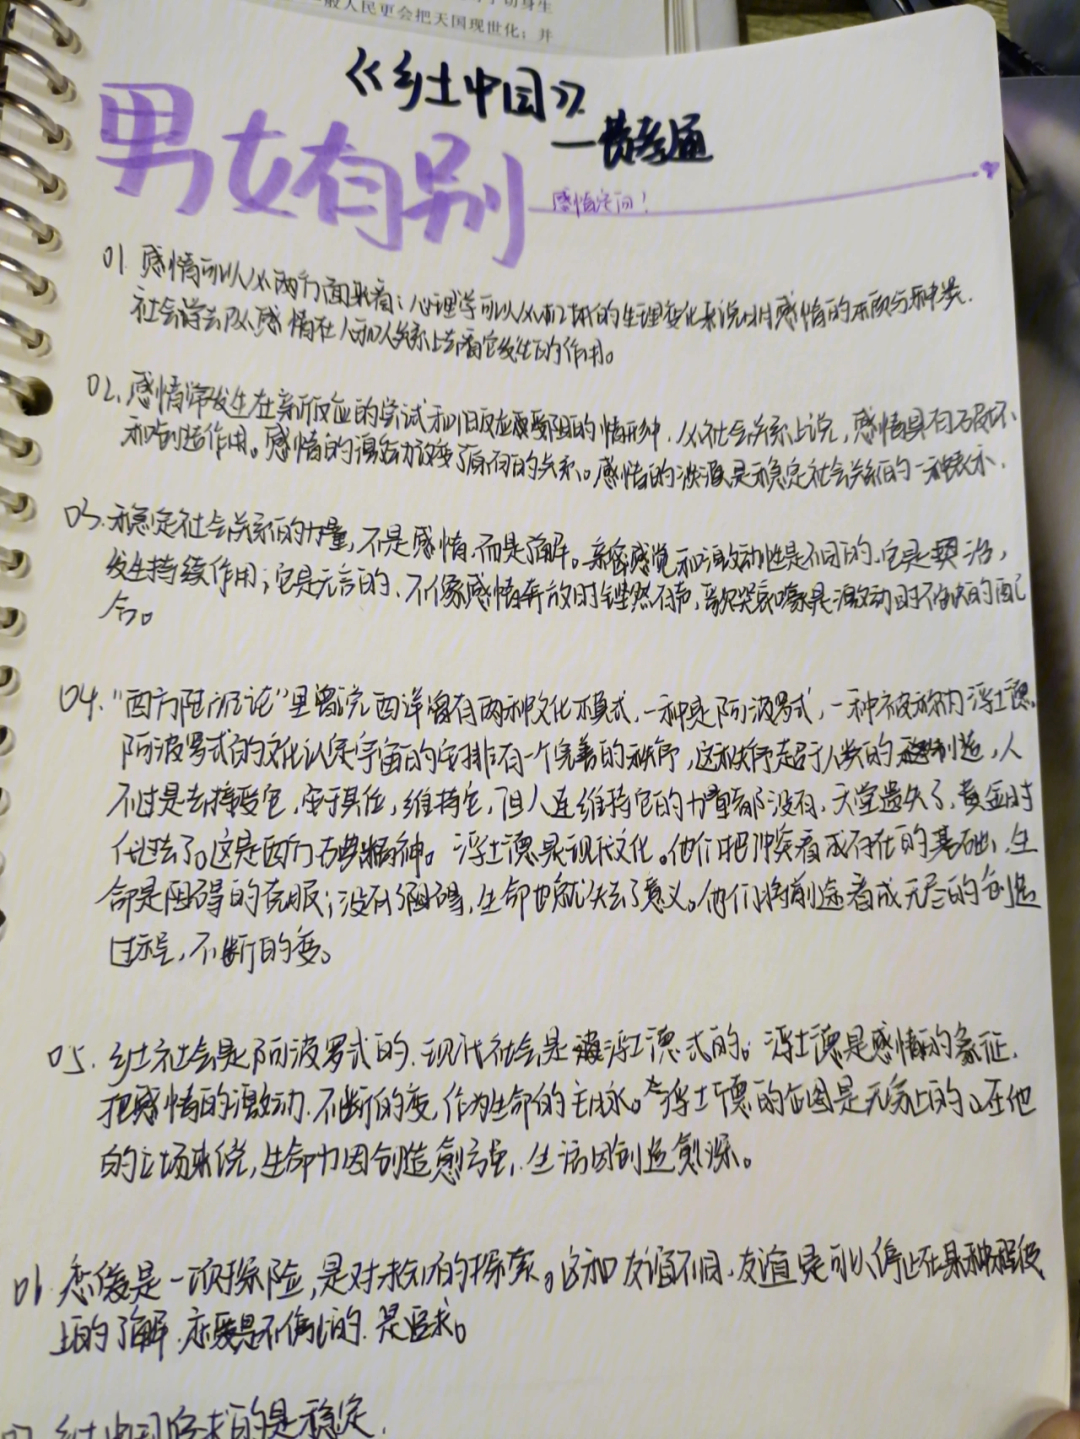 切身生
般人民更会把天国现世化；并
《乡土中国》
—费孝通
男女有别
感情定向！
01. 感情可以从两方面来看：心理学可以从机体的生理变化来说明感情的本质与种类.
社会学会从感情在人和人关系上去看它发生的作用。
02. 感情常发生在新反应的尝试和旧反应受阻的情形中，从社会关系上说，感情具有破坏
和创造作用。感情的激动改变了原有的关系。感情的淡漠是稳定社会关系的一种表示.
03. 稳定社会关系的力量，不是感情，而是了解。亲密感觉和激动性是不同的，它是契洽，
发生持续作用；它是无言的，不像感情奔放时铿然有声，歌哭哀嚎是激动时不缺的配
合。
04. “西方陌沉论”里曾说西洋曾有两种文化模式，一种是阿波罗式，一种被称为浮士德.
阿波罗式的文化认定宇宙的安排有一个完善的秩序，这秩序超于人类的创造，人
不过是去接受它，安于其位，维持它，但人连维持它的力量都没有，天堂遗失了，黄金时
代过去了。这是西方古典精神。浮士德是现代文化。他们把冲突看成存在的基础、生
命是阻碍的克服；没有了阻碍，生命也就失去了意义。他们将前途看成无尽的创造
过程，不断的变。
05. 乡土社会是阿波罗式的，现代社会是浮士德式的。浮士德是感情的象征，
把感情的激动，不断的变，作为生命的主脉。浮士德的企图是无穷止的，在他
的立场来说，生命力因创造愈强，生活因创造愈深。
06. 恋爱是一项探险，是对未知的探索。这和友谊不同，友谊是可以停止在某种程度
上的了解，恋爱是不停止的，是追求。
07. 乡土中国追求的是稳定.